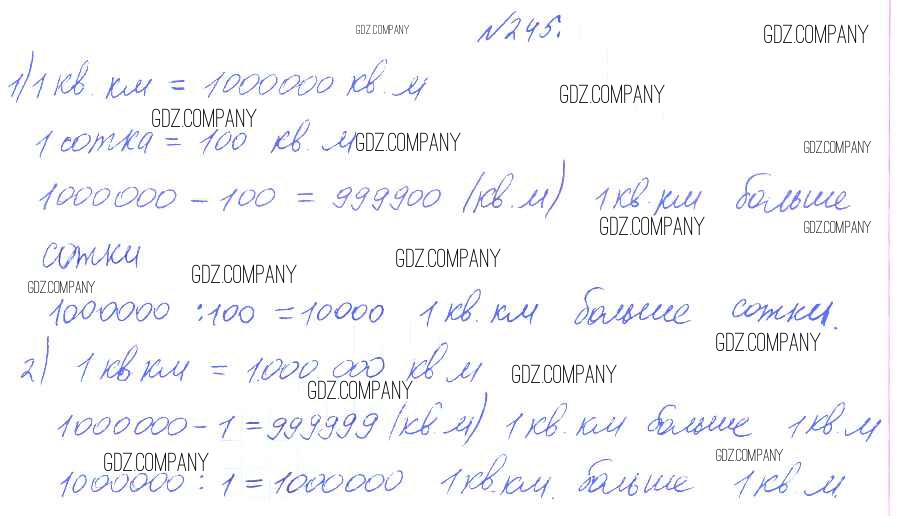 GDZ.COMPANY №245. GDZ.COMPANY
1) 1 кв. км = 1000000 кв. м
GDZ.COMPANY
GDZ.COMPANY
1 сотка = 100 кв. м GDZ.COMPANY
GDZ.COMPANY
1000000 - 100 = 999900 (кв. м) 1 кв. км больше
GDZ.COMPANY GDZ.COMPANY
сотки
GDZ.COMPANY GDZ.COMPANY
GDZ.COMPANY
1000000 : 100 = 10000 1 кв. км больше сотки.
GDZ.COMPANY
2) 1 кв км = 1.000 000 кв м
GDZ.COMPANY GDZ.COMPANY
1000000 - 1 = 999999 (кв. м) 1 кв. км больше 1 кв. м
GDZ.COMPANY GDZ.COMPANY
1000000 : 1 = 1000000 1 кв. км. больше 1 кв м.